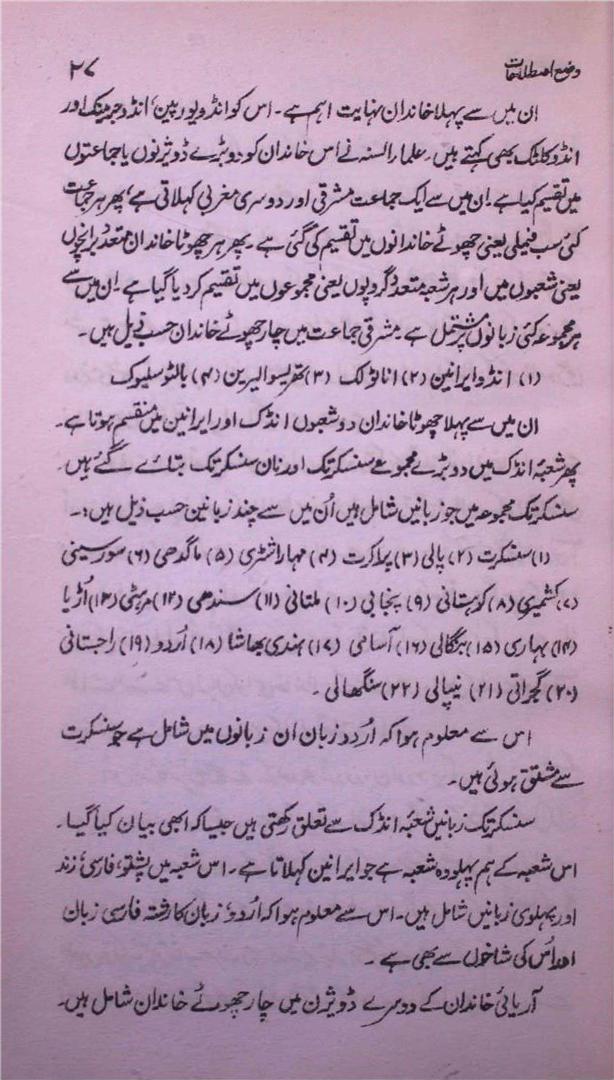 وضع اصطلاحات ۲۷
ان میں سے پہلا خاندان نہایت اہم ہے۔ اس کو انڈو یورپین، انڈو جرمینک اور
انڈو کلٹک بھی کہتے ہیں۔ علمار السنہ نے اس خاندان کو دو بڑے ڈویژنوں یا جماعتوں
میں تقسیم کیا ہے۔ ان میں سے ایک جماعت مشرقی اور دوسری مغربی کہلاتی ہے، پھر ہر جماعت
کئی سب فیملی یعنی چھوٹے خاندانوں میں تقسیم کی گئی ہے۔ پھر ہر چھوٹا خاندان متعدد برانچوں
یعنی شعبوں میں اور ہر شعبہ متعدد گروپوں یعنی مجموعوں میں تقسیم کر دیا گیا ہے۔ ان میں سے
ہر مجموعہ کئی زبانوں پر مشتمل ہے۔ مشرقی جماعت میں چار چھوٹے خاندان حسب ذیل ہیں۔
(۱) انڈو ایرانین (۲) اناٹولک (۳) تھریسو الیرین (۴) بالٹو سلیوک
ان میں سے پہلا چھوٹا خاندان دو شعبوں انڈک اور ایرانین میں منقسم ہوتا ہے۔
پھر شعبۂ انڈک میں دو بڑے مجموعے سنسکرتک اور نان سنسکرتک بتائے گئے ہیں۔
سنسکرتک مجموعہ میں جو زبانیں شامل ہیں اُن میں سے چند زبانیں حسب ذیل ہیں:۔
(۱) سنسکرت (۲) پالی (۳) پراکرت (۴) مہاراشٹری (۵) ماگدھی (۶) سورسینی
(۷) کشمیری (۸) کوہستانی (۹) پنجابی (۱۰) ملتانی (۱۱) سندھی (۱۲) مرہٹی (۱۳) اُڑیا
(۱۴) بہاری (۱۵) بنگالی (۱۶) آسامی (۱۷) ہندی بھاشا (۱۸) اُردو (۱۹) راجستانی
(۲۰) گجراتی (۲۱) نیپالی (۲۲) سنگھالی۔
اس سے معلوم ہوا کہ اُردو زبان ان زبانوں میں شامل ہے جو سنسکرت
سے مشتق ہوئی ہیں۔
سنسکرتک زبانیں شعبۂ انڈک سے تعلق رکھتی ہیں جیسا کہ ابھی بیان کیا گیا۔
اس شعبہ کے ہم پہلو وہ شعبہ ہے جو ایرانین کہلاتا ہے۔ اس شعبہ میں پشتو، فارسی، زند
اور پہلوی زبانیں شامل ہیں۔ اس سے معلوم ہوا کہ اُردو زبان کا رشتہ فارسی زبان
اور اُس کی شاخوں سے بھی ہے۔
آریائی خاندان کے دوسرے ڈویژن میں چار چھوٹے خاندان شامل ہیں۔